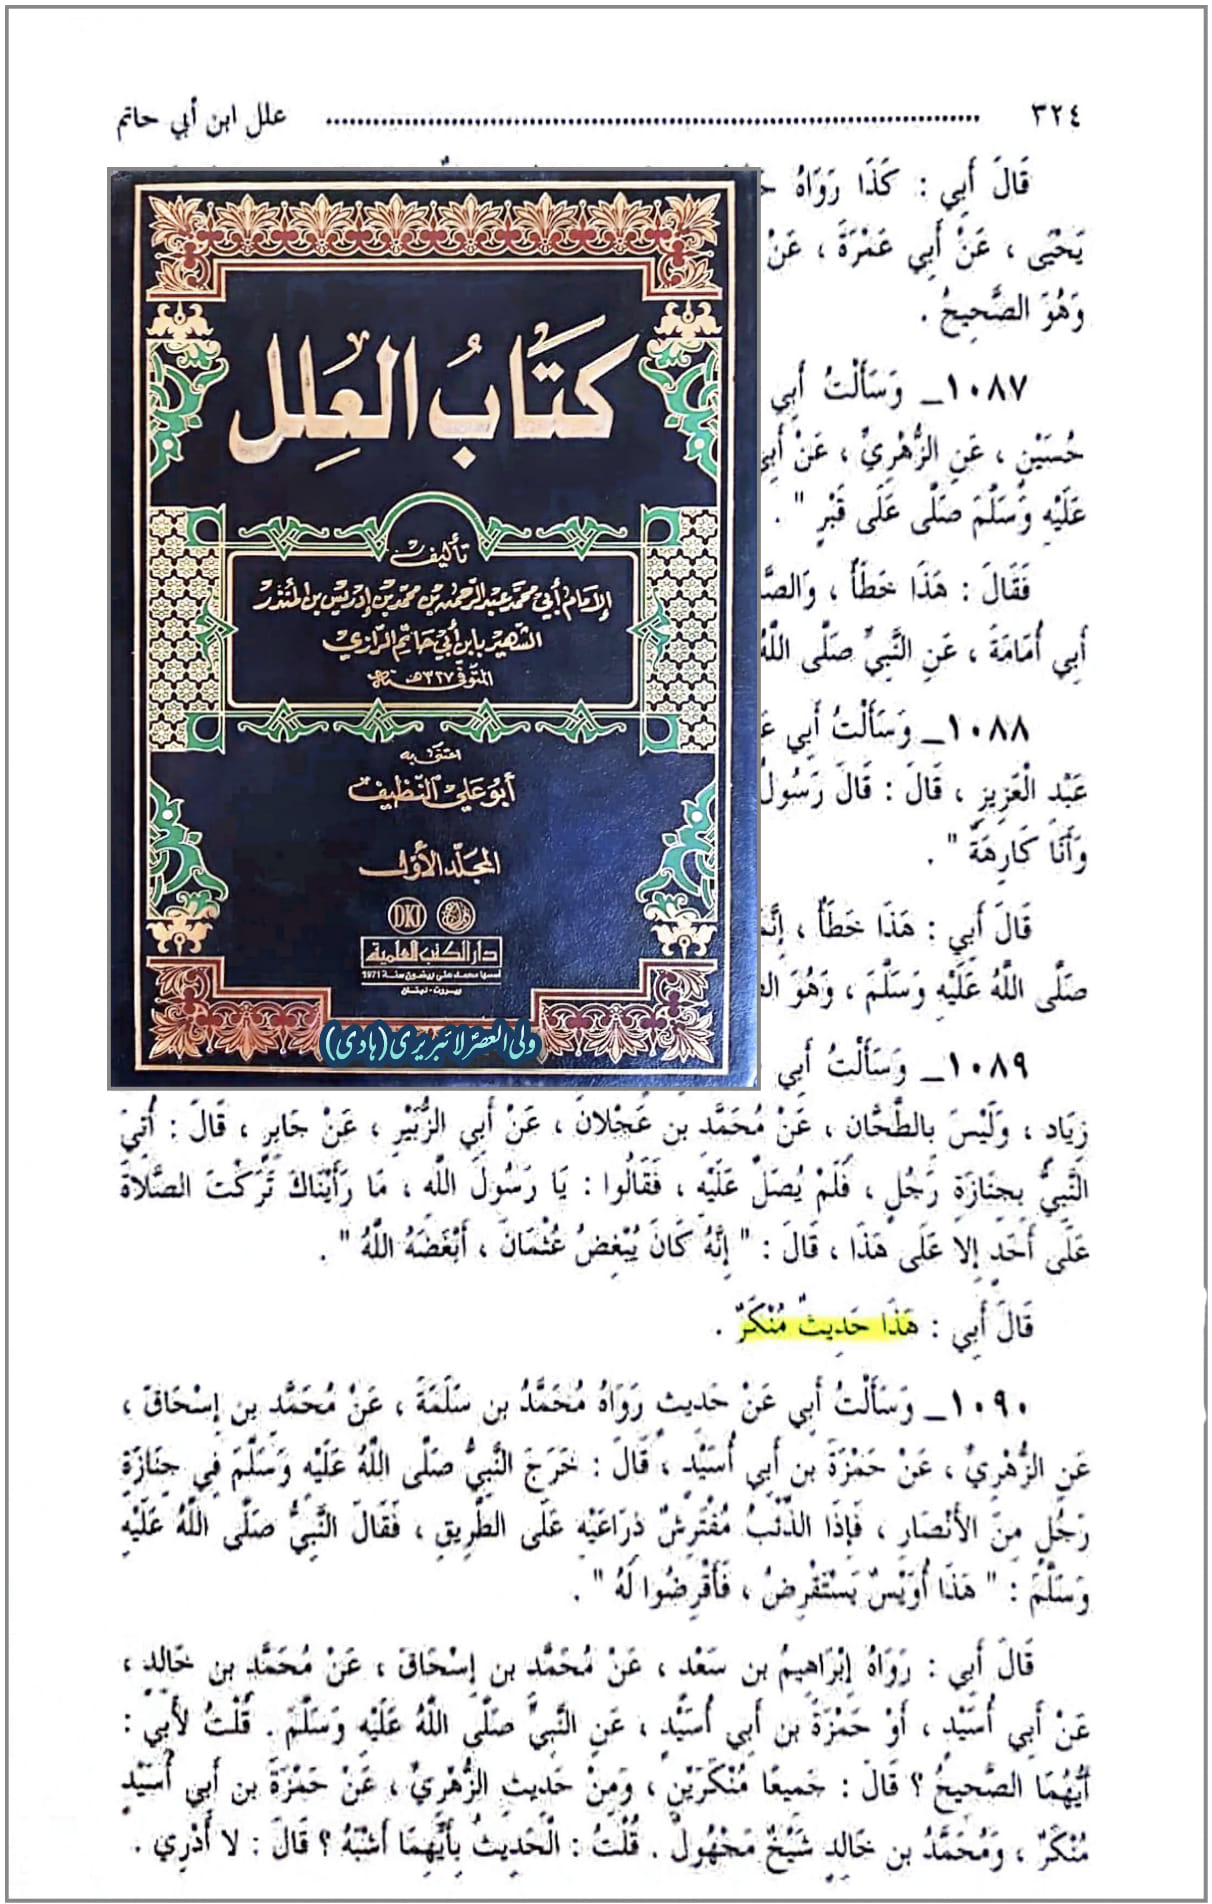 ٣٢٤ علل ابن أبي حاتم
قَالَ أَبِي : كَذَا رَوَاهُ
يَحْيَى ، عَنْ أَبِي عَمْرَةَ ، عَنْ
وَهُوَ الصَّحِيحُ .
١٠٨٧ـ وَسَأَلْتُ أَبِي
حُسَيْنٍ ، عَنِ الزُّهْرِيِّ ، عَنْ أَبِي
عَلَيْهِ وَسَلَّمَ صَلَّى عَلَى قَبْرٍ " .
فَقَالَ : هَذَا خَطَأٌ ،
أَبِي أُمَامَةَ ، عَنِ النَّبِيِّ صَلَّى اللَّهُ
١٠٨٨ـ وَسَأَلْتُ أَبِي
عَبْدِ الْعَزِيزِ ، قَالَ : قَالَ رَسُولُ
وَأَنَا كَارِهَةٌ " .
قَالَ أَبِي : هَذَا خَطَأٌ ،
صَلَّى اللَّهُ عَلَيْهِ وَسَلَّمَ ، وَهُوَ
١٠٨٩ـ وَسَأَلْتُ أَبِي
زِيَادٍ ، وَلَيْسَ بِالطَّحَّانِ ، عَنْ مُحَمَّدِ بن عَجْلانَ ، عَنْ أَبِي الزُّبَيْرِ ، عَنْ جَابِرٍ ، قَالَ : أُتِيَ
النَّبِيُّ بِجَنَازَةِ رَجُلٍ ، فَلَمْ يُصَلِّ عَلَيْهِ ، فَقَالُوا : يَا رَسُولَ اللَّهِ ، مَا رَأَيْنَاكَ تَرَكْتَ الصَّلاةَ
عَلَى أَحَدٍ إِلا عَلَى هَذَا ، قَالَ : " إِنَّهُ كَانَ يُبْغِضُ عُثْمَانَ ، أَبْغَضَهُ اللَّهُ " .
قَالَ أَبِي : هَذَا حَدِيثٌ مُنْكَرٌ .
١٠٩٠ـ وَسَأَلْتُ أَبِي عَنْ حَدِيثٍ رَوَاهُ مُحَمَّدُ بن سَلَمَةَ ، عَنْ مُحَمَّدِ بن إِسْحَاقَ ،
عَنِ الزُّهْرِيِّ ، عَنْ حَمْزَةَ بن أَبِي أُسَيْدٍ ، قَالَ : خَرَجَ النَّبِيُّ صَلَّى اللَّهُ عَلَيْهِ وَسَلَّمَ فِي جِنَازَةِ
رَجُلٍ مِنَ الأَنْصَارِ ، فَإِذَا الذِّئْبُ مُفْتَرِشٌ ذِرَاعَيْهِ عَلَى الطَّرِيقِ ، فَقَالَ النَّبِيُّ صَلَّى اللَّهُ عَلَيْهِ
وَسَلَّمَ : " هَذَا أُوَيْسٌ يَسْتَقْرِضُ ، فَأَقْرِضُوا لَهُ " .
قَالَ أَبِي : رَوَاهُ إِبْرَاهِيمُ بن سَعْدٍ ، عَنْ مُحَمَّدِ بن إِسْحَاقَ ، عَنْ مُحَمَّدِ بن خَالِدٍ ،
عَنْ أَبِي أُسَيْدٍ ، أَوْ حَمْزَةَ بن أَبِي أُسَيْدٍ ، عَنِ النَّبِيِّ صَلَّى اللَّهُ عَلَيْهِ وَسَلَّمَ . قُلْتُ لأَبِي :
أَيُّهُمَا الصَّحِيحُ ؟ قَالَ : جَمِيعًا مُنْكَرَيْنِ ، وَمِنْ حَدِيثِ الزُّهْرِيِّ ، عَنْ حَمْزَةَ بن أَبِي أُسَيْدٍ
مُنْكَرٌ ، وَمُحَمَّدُ بن خَالِدٍ شَيْخٌ مَجْهُولٌ . قُلْتُ : الْحَدِيثُ بِأَيِّهِمَا أَشْبَهُ ؟ قَالَ : لا أَدْرِي .
كتاب العلل
تأليف
الإمام أبي محمد عبد الرحمن بن محمد بن إدريس بن المنذر
الشهير بابن أبي حاتم الرازي
المتوفى ٣٢٧ هـ
اعتنى به
أبو علي النظيف
المجلد الأول
DKI
دار الكتب العلمية
أسسها محمد علي بيضون سنة 1971
بيروت - لبنان
ولی العصر لائبریری (ہادی)